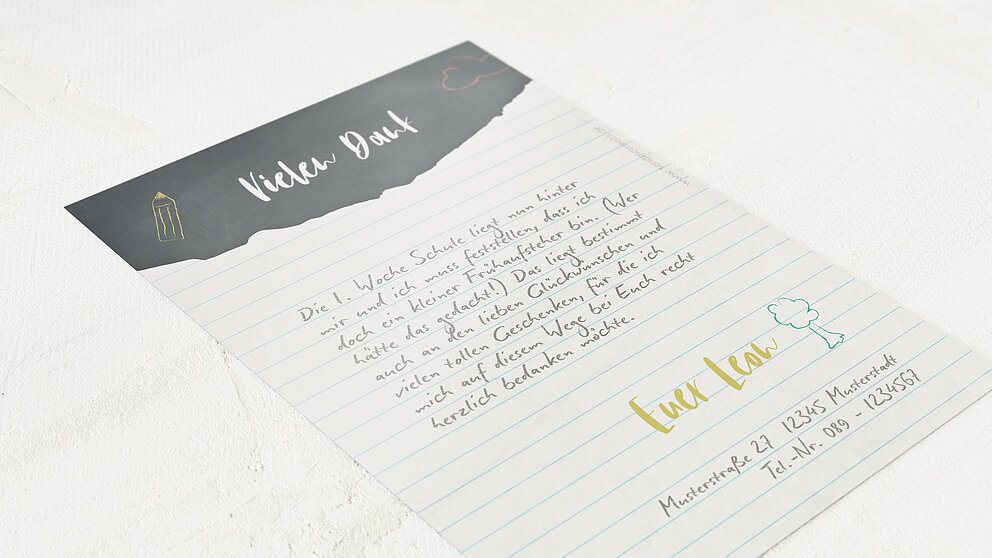 Vielen Dank
www.sendmoments.de
Die 1. Woche Schule liegt nun hinter
mir und ich muss feststellen, dass ich
doch ein kleiner Frühaufsteher bin. (Wer
hätte das gedacht!) Das liegt bestimmt
auch an den lieben Glückwünschen und
vielen tollen Geschenken, für die ich
mich auf diesem Wege bei Euch recht
herzlich bedanken möchte.
Euer Leon
Musterstraße 27 12345 Musterstadt
Tel.-Nr. 089 - 1234567